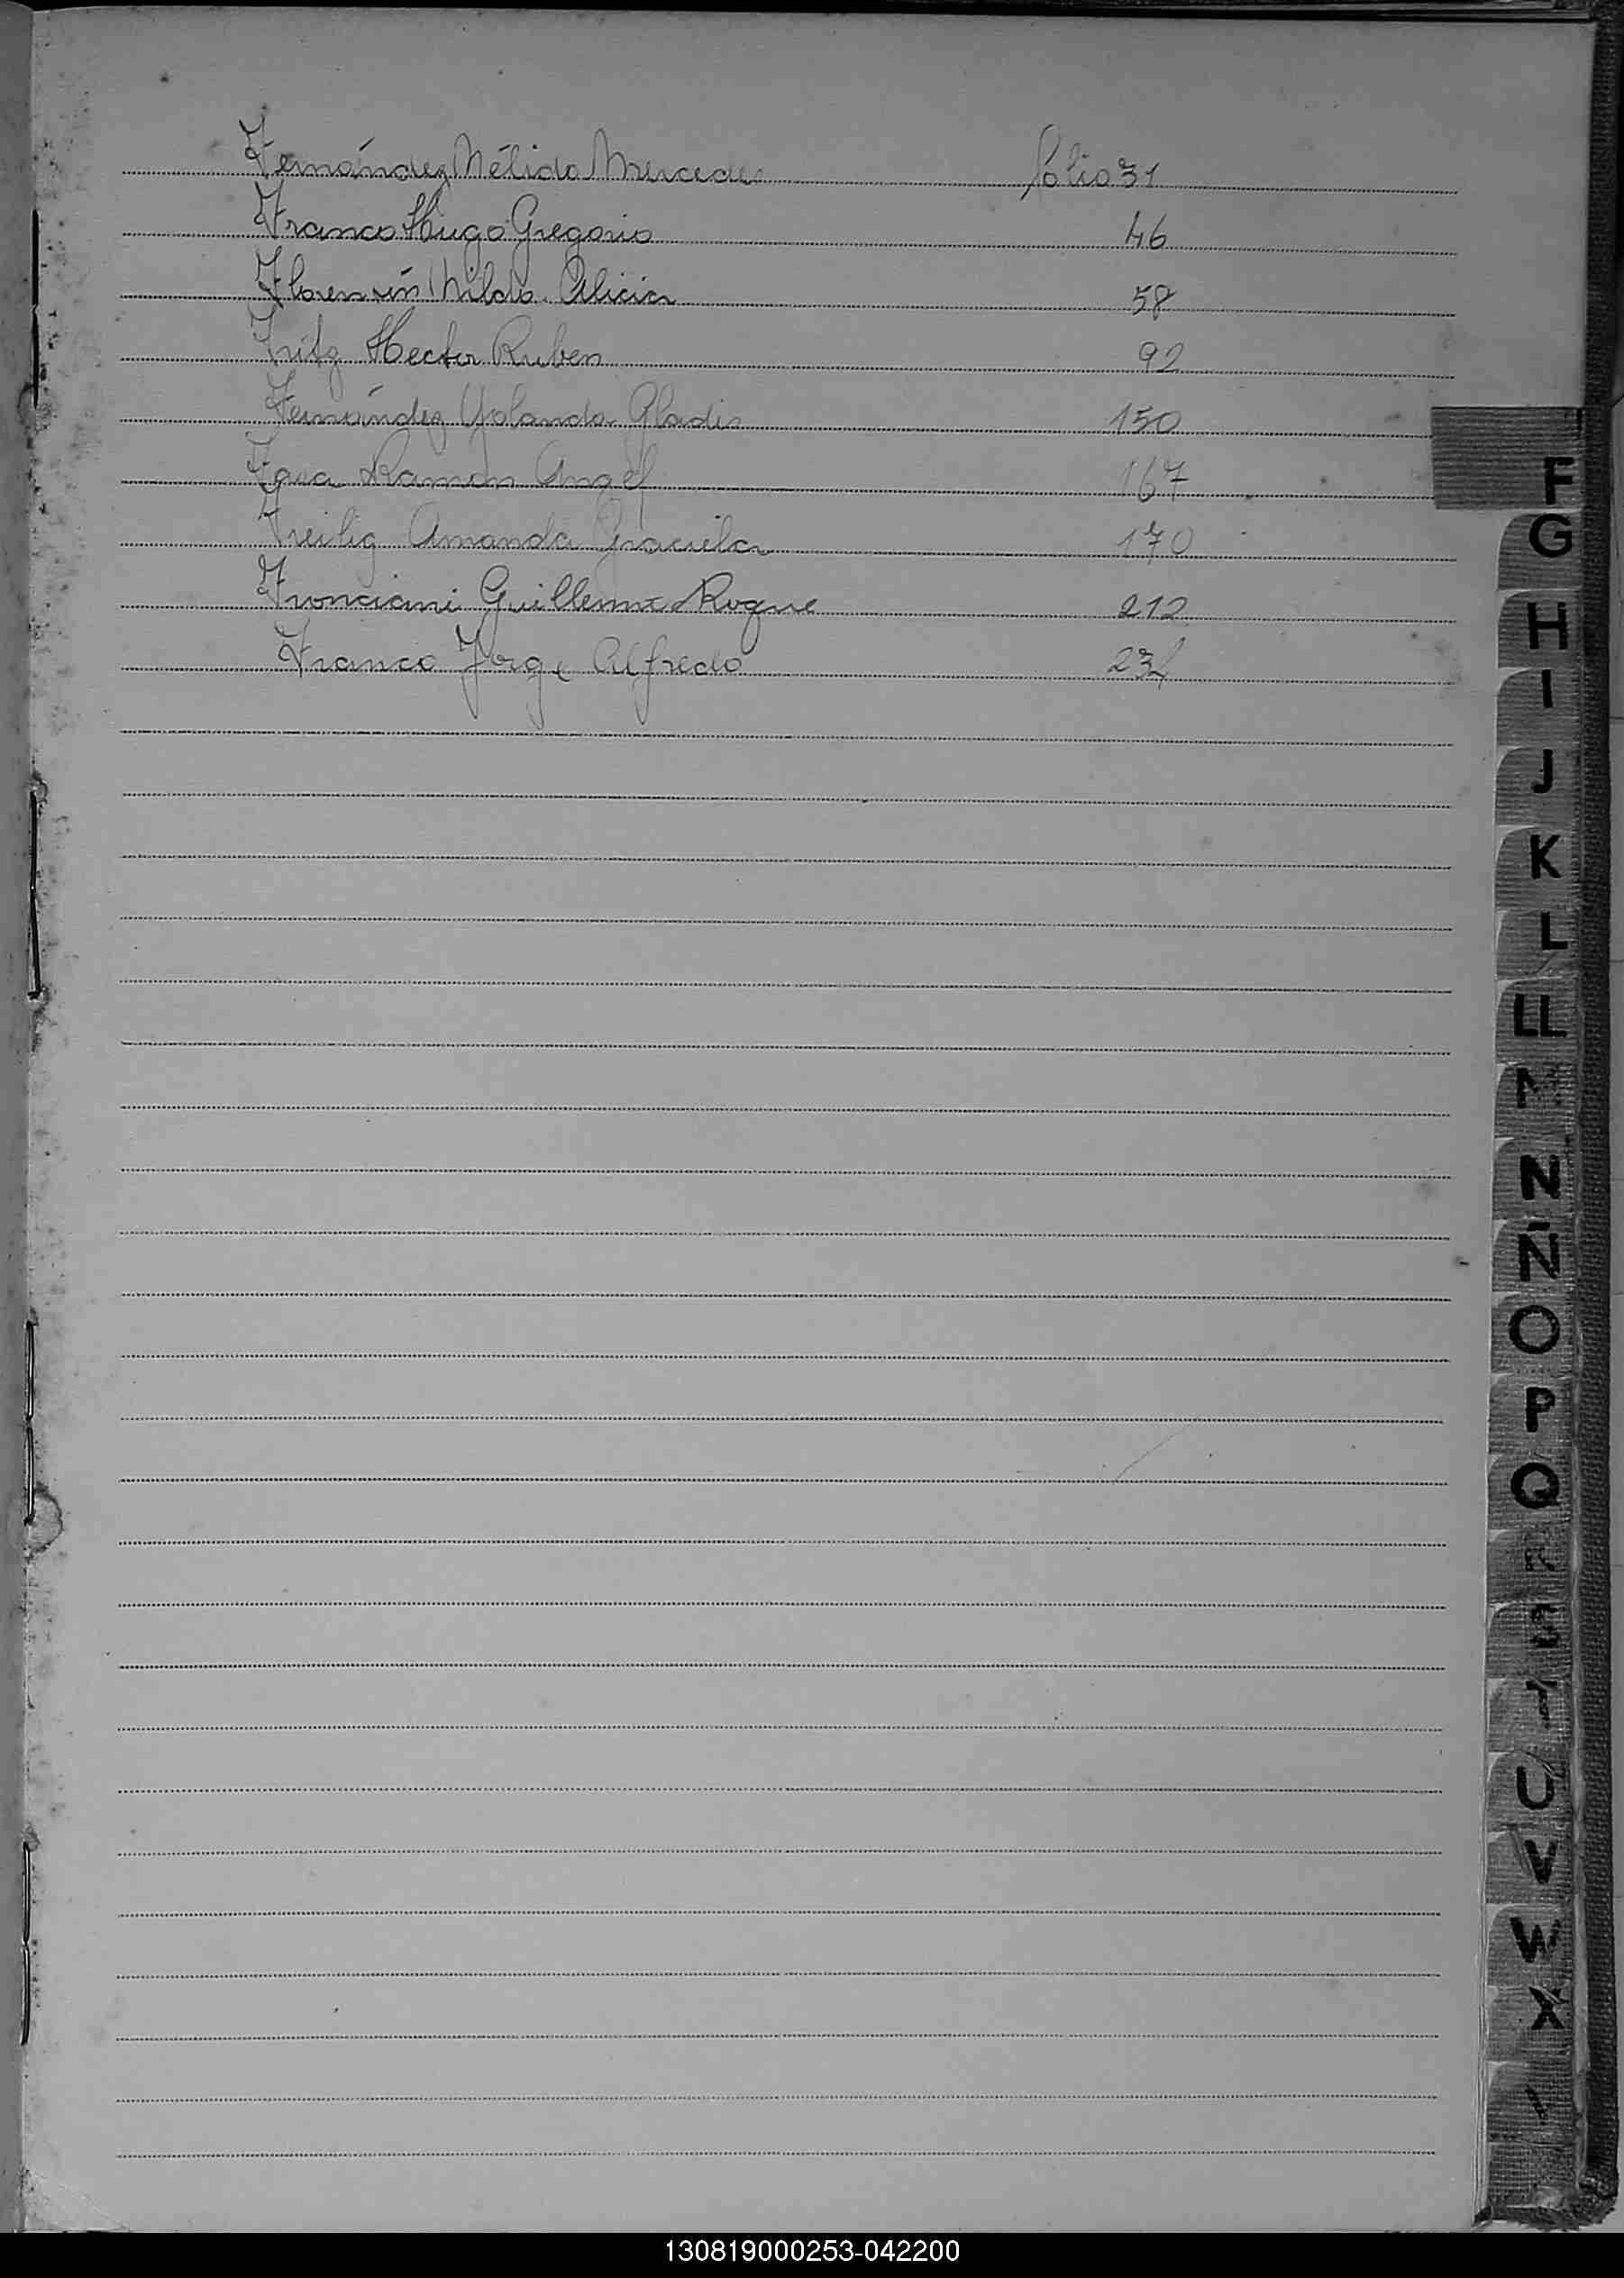 Fernández Nélida Mercedes folio 31
Franco Hugo Gregorio 46
Florensín Nilda Alicia 58
Fritz Hector Ruben 92
Fernández Yolanda Gladis 150
Ramón Angel 167
Freilig Amanda Graciela 170
Fronciani Guillermo Roque 212
Franco Jorge Alfredo
F
G
H
I
J
K
L
LL
M
N
Ñ
O
P
Q
R
S
T
U
V
W
X
130819000253-042200